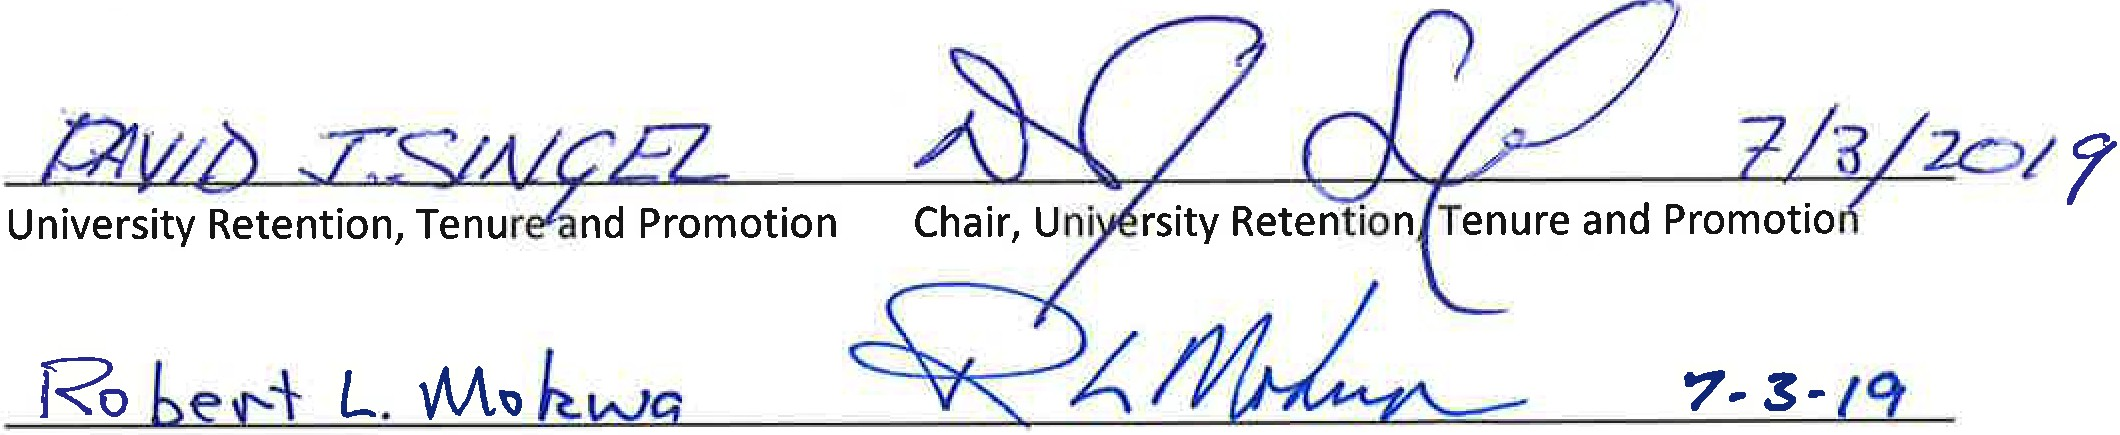 DAVID J. SINGEL 7/3/2019
University Retention, Tenure and Promotion Chair, University Retention, Tenure and Promotion
Robert L. Mokwa R L Mokwa 7-3-19